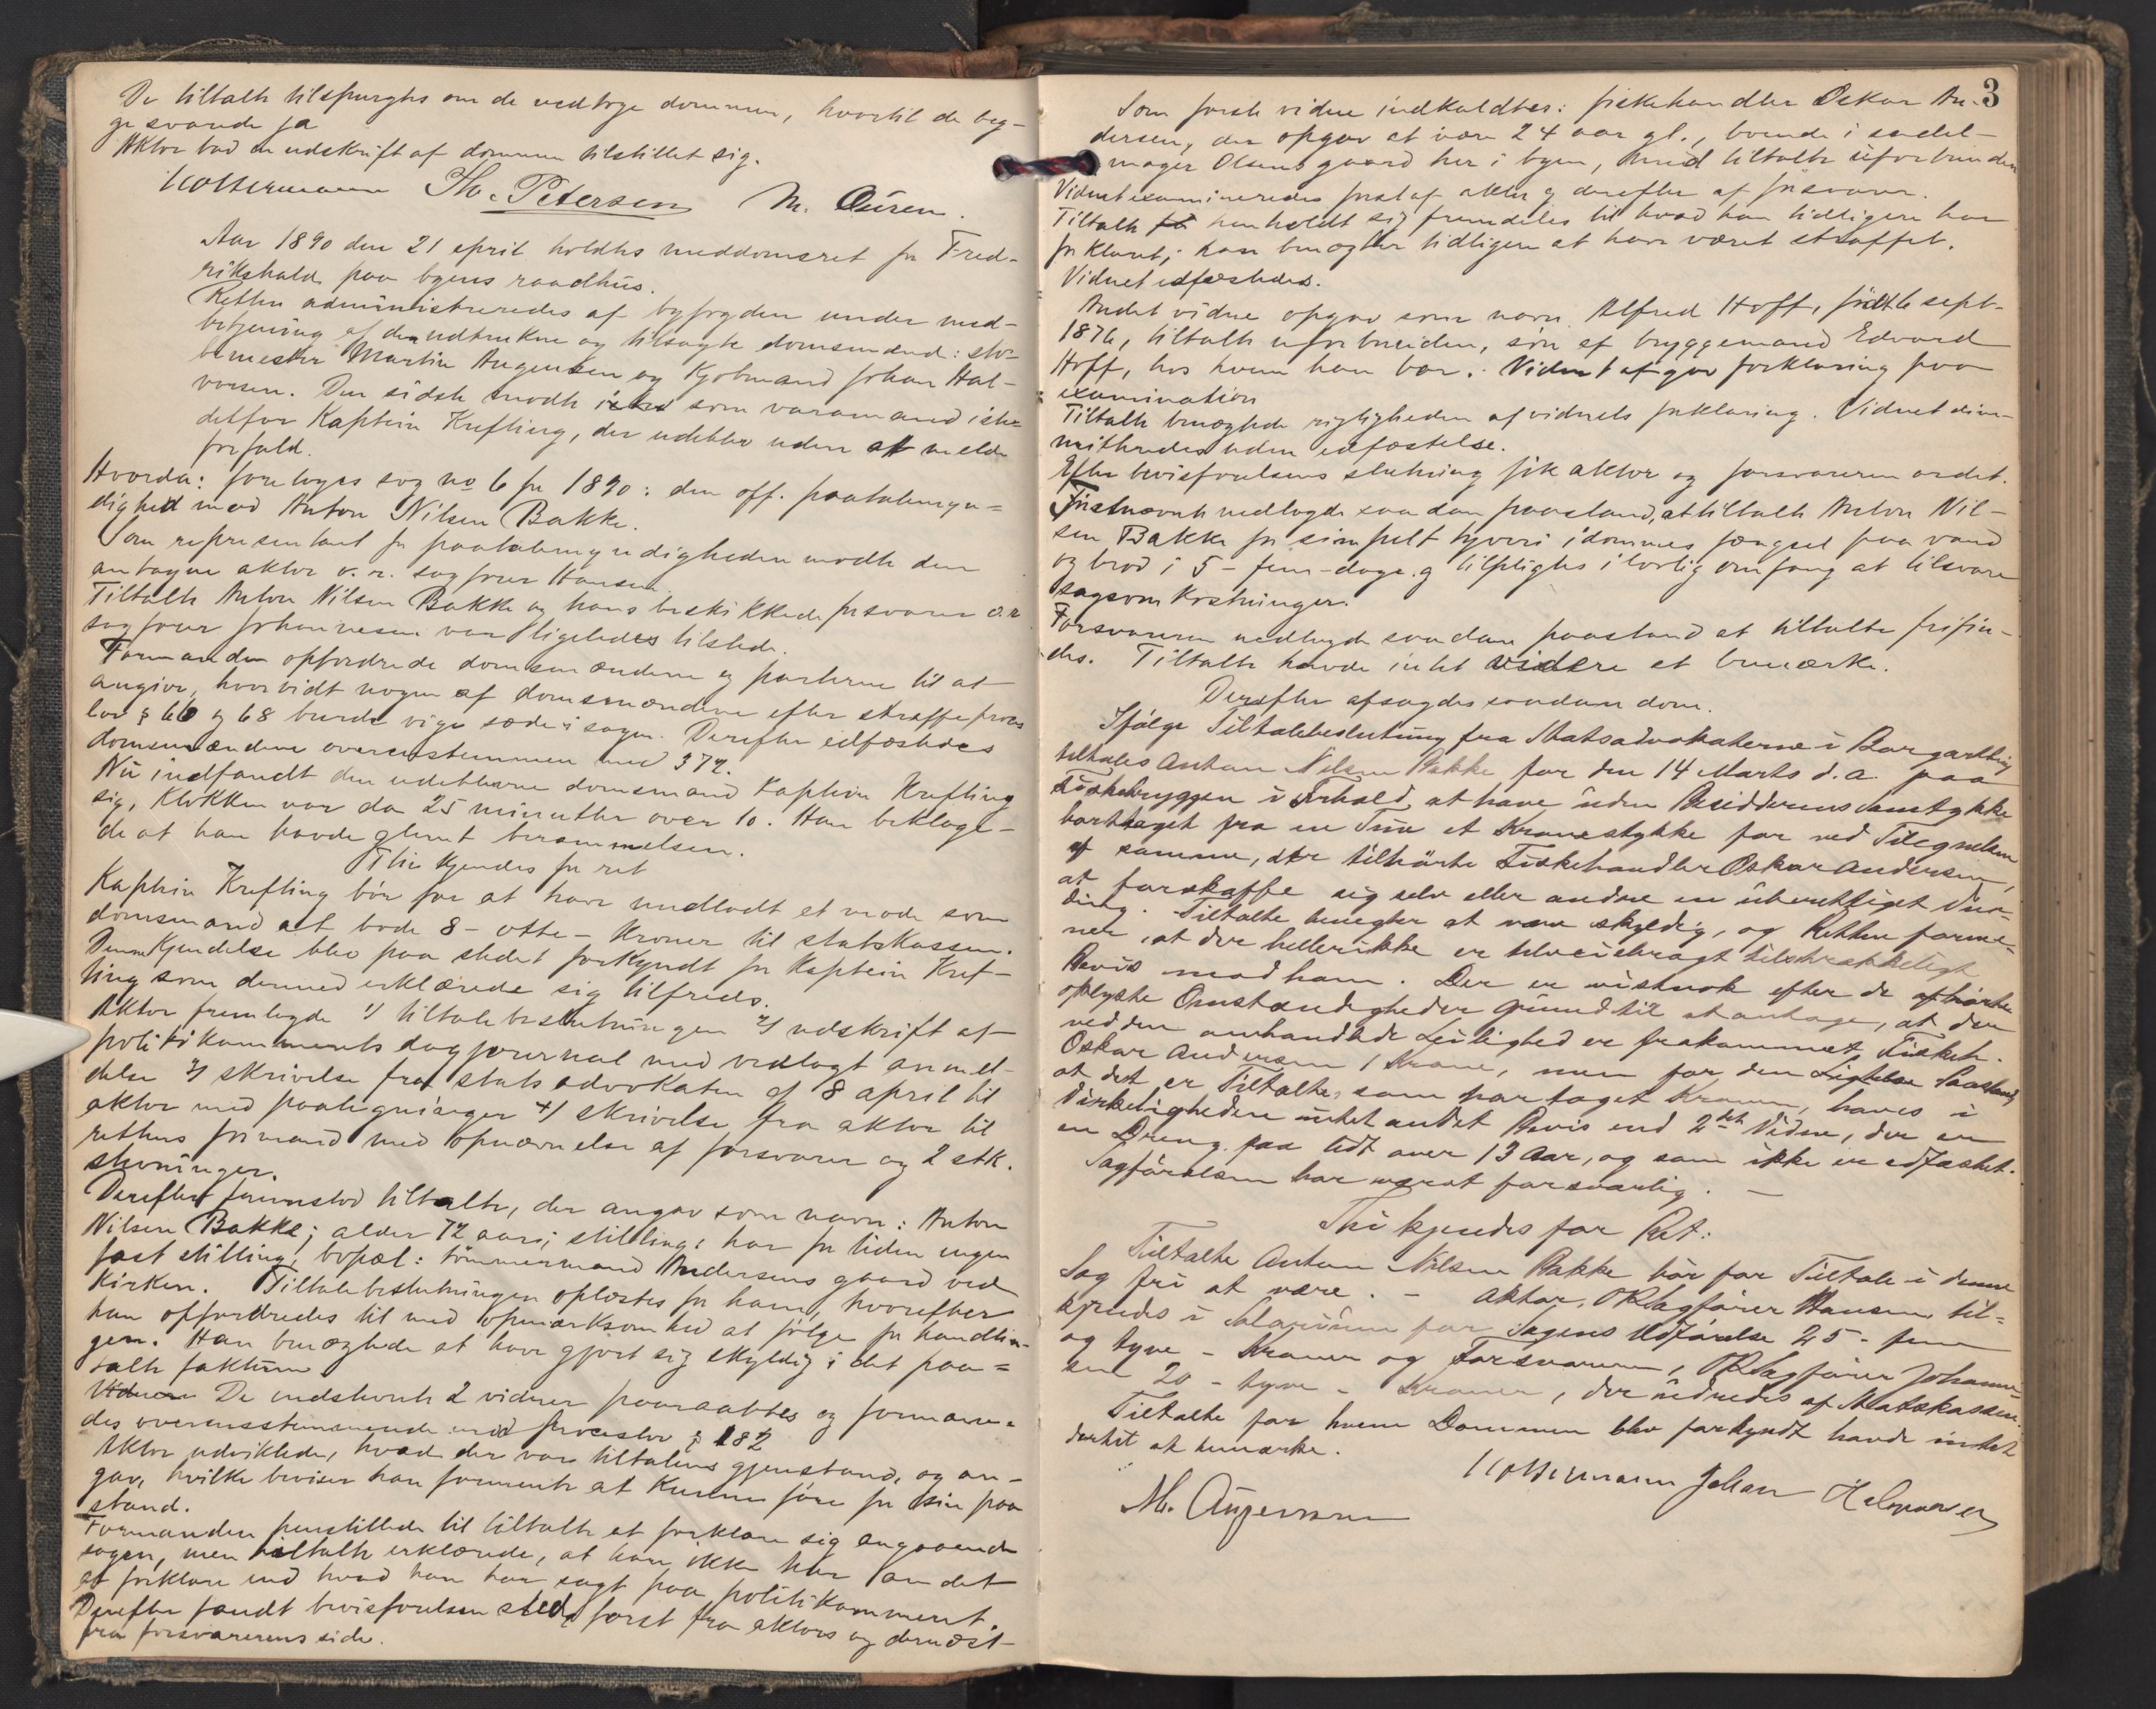 De tiltalte tilspurgtes om de vedtoge dommen, hvortil de beg-
ge svarede ja
Aktor bad en udskrift af dommen tilstillet sig.
Th. Petersen M. Ouren.
Aar 1890 den 21 april holdtes meddomsret for Fred-
rikshald paa byens raadhus.
Retten administreredes af byfogden under med-
betjening af de udtrukne og tilsagte domsmænd: sko-
Martin Augensen og Kjøbmand Johan Hal-
vorsen. Den sidste mødte som varamand iste-
detfor Kaptein Krefting, der udeblev uden at melde
forfald.
Hvorda: foretoges sag no 6 for 1890: den off. paatalemyn=
dighed mod Anton Nilsen Bakke.
Som representant for paatalemyndigheden mødte den
antagne aktor o.r. sagfører Hansen.
Tiltalte Anton Nilsen Bakke og hans beskikkede forsvarer o.r.
sagfører Johannesen var ligeledes tilstede.
Formanden opfordrede domsmændene og parterne til at
angive, hvorvidt nogen af domsmændene efter straffeproces
lov § 66 og 68 burde vige sæde i sagen. Derefter edfæstedes
domsmændene overenstemmen med 372.
Nu indfandt den udeblevne domsmand Kaptein Krefting
sig, Klokken var da 25 minutter over 10. Han beklage-
de at han havde glemt berammelsen.
Thi kjendes for ret
Kaptein Krefting bør for at have undladt at møde som
domsmand at bøde 8 - otte - Kroner til statskassen.
Denne Kjendelse blev paa stedet forkyndt for Kaptein Kref-
ting som dermed erklærede sig tilfreds.
Aktor fremlagde 1/ tiltalebeslutningen 2/ udskrift af
politikammerets dagjournal med vedlagt anmel-
delse 3/ skrivelse fra statsadvokaten af 8 april til
aktor med paategninger 4/ skrivelse fra aktor til
rettens formand med opnævnelse af forsvarer og 2 stk.
stevninger.
Derefter fremstod tiltalte, der angav som navn: Anton
Nilsen Bakke; alder 72 aar; stilling: har for tiden ingen
fast stilling; bopæl: tømmermand Andersens gaard ved
Kirken. Tiltalebeslutningen oplæstes for ham, hvorefter
han opfordredes til med opmærksomhed at følge forhandlin-
gen. Han benægtede at have gjort sig skyldig i det paa=
talte faktum
Vidnerne De indstevnte 2 vidner paaraabtes og formane=
des overensstemmende med proceslov § 182
Aktor udviklede, hvad der var tiltalens gjenstand, og an-
gav, hvilke beviser han formente at kunne føre for sin paa
stand.
Formanden henstillede til tiltalte at forklare sig angaaende
sagen, men tiltalte erklærede, at han ikke har andet
at forklare end hvad han har sagt paa politikammeret.
Derefter fandt bevisførelsen sted, først fra aktors og dernæst
fra forsvarerens side.
3
Som første vidne indkaldtes: fiskehandler Oskar An-
dersen, der opgav at være 24 aar gl., boende i sadel-
mager Olsens gaard her i byen, med tiltalte uforbunden
Vidnet examineredes først af aktor og derefter af forsvarer.
Tiltalte henholdt sig fremdeles til hvad han tidligere har
forklaret; han benægter tidligere at have været straffet.
Vidnet edfæstedes.
Andet vidne opgav som navn Alfred Hoff, født 6 sept.
1876, tiltalte uforbunden, søn af bryggemand Edvard
Hoff, hos hvem han bor. Vidnet afgav forklaring paa
examination
Tiltalte benægtede rigtigheden af vidnets forklaring. Vidnet dim-
mitteredes uden edfæstelse.
Efter bevisførelsens slutning fik aktor og forsvareren ordet.
Førstnævnte nedlagde saadan paastand, at tiltalte Anton Nil-
sen Bakke for simpelt tyveri idømmes fængsel paa vand
og brød i 5 - fem - dage og tilpligtes i lovlig omfang at tilsvare
sagsomkostninger.
Forsvareren nedlagde saadan paastand at tiltalte frifin-
des. Tiltalte havde intet videre at bemærke.
Derefter afsagdes saadan dom.
Ifølge Tiltalebeslutning fra Statsadvokaterne i Borgarthing
tiltales Anton Nilsen Bakke for den 14 Marts d.a. paa
Fiskebryggen i Frhald, at have uden Besidderens Samtykke
borttaget fra en Tine et Kronestykke for ved Tilegnelsen
af samme, der tilhørte Fiskehandler Oskar Andersen,
at forskaffe sig selv eller andre en uberettiget Vin-
ding. Tiltalte benegter at være skyldig, og Retten forme-
ner, at der hellerikke er tilveiebragt tilstrækkeligt
Bevis mod ham. Der er vistnok efter de afhørte
oplyste Omstændigheder Grund til at antage, at der
ved den omhandlede Leilighed er frakommet Fiskeh.
Oskar Andersen 1 Krone, men for den
at det er Tiltalte, som har taget Kronen, haves i
Virkeligheden intet andet Bevis end 2det Vidne, der er
en Dreng paa lidt over 13 Aar, og som ikke er edfæstet.
Sagførelsen har været forsvarlig. -
Thi kjendes for Ret:
Tiltalte Anton Nilsen Bakke bør for Tiltale i denne
Sag fri at være. - Aktor, ORSagfører Hansen, til=
kjendes i Salarium for Sagens Udførelse 25 - fem
og tyve - Kroner og Forsvareren, ORSagfører Johanne-
sen 20 - tyve - Kroner, der udredes af Statskassen.
Tiltalte for hvem Dommen blev forkyndt havde intet
dertil at bemærke.
Johan Halvorsen
M. Augensen